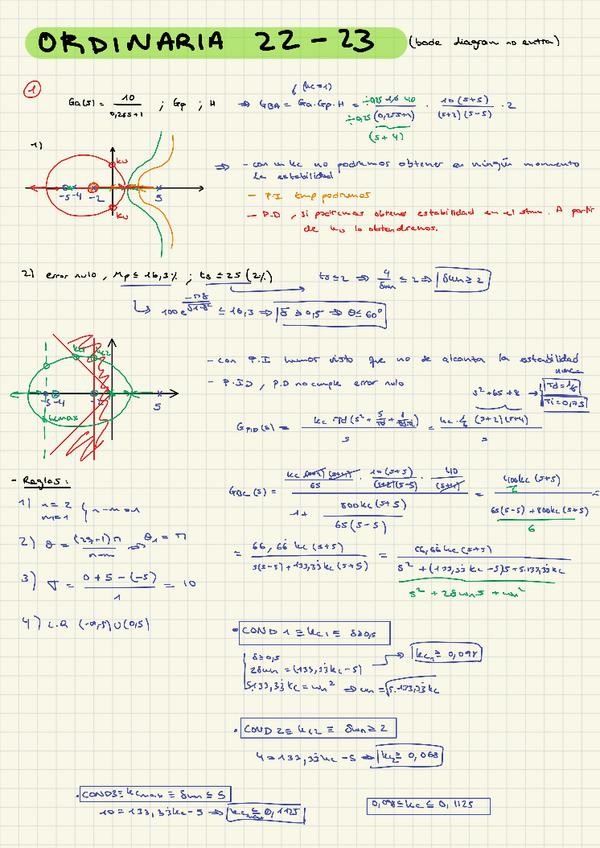 ORDINARIA 22-23 (bode diagram no entra)
(kc=1)
1 Ga(s) = 10 / 0,25s+1 ; Gp ; H ⇒ GBA = Ga·Gp·H = 40 / (0,25s+1) · 10(s+5) / (s+2)(s-5) · 2
(s+4)
1)
kω
-5 -4 -2 5
kω
⇒ - con un kc no podremos obtener en ningún momento
la estabilidad
- P.I tmp podremos
- P.D, si podremos obtener estabilidad en el stma. A partir
de kω lo obtendremos.
2) error nulo, Mp ≤ 16,3%; ts ≤ 2s (2%) ts ≤ 2 ⇒ 4/δωn ≤ 2 ⇒ δωn ≥ 2
100e^(-πδ/√1-δ²) ≤ 16,3 ⇒ δ ≥ 0,5 ⇒ θ ≤ 60°
kc1 kc2
-5 -4 5
kcmax
- con P.I hemos visto que no se alcanza la estabilidad
nunca
- P.ID, P.D no cumple error nulo
s²+6s+8 → Td = 1/6
Ti = 0,75
GPID(s) = kc Td (s² + s/Td + 1/TdTi) / s = kc 1/6 (s+2)(s+4) / s
- Reglas:
1) n=2
m=1 } n-m=1
2) θ = (2q+1)π / n-m ⇒ θ1 = π
3) σ = 0+5-(-5) / 1 = 10
4) L.R (-∞,5) ∪ (0,5)
GBC(s) = kc (s+2)(s+4) / 6s · 10(s+5) / (s+2)(s-5) · 40 / (s+4) / 1 + 800kc(s+5) / 6s(s-5) = 400kc(s+5) / 6 / 6s(s-5) + 800kc(s+5) / 6
= 66,66 kc (s+5) / s(s-5) + 133,33 kc (s+5) = 66,66 kc (s+5) / s² + (133,33 kc - 5)s + 5·133,33kc
s² + 2δωn s + ωn²
• COND 1 ≡ kc1 ≡ δ ≥ 0,5
δ ≥ 0,5
2δωn = (133,33kc - 5) → kc1 ≥ 0,098
5·133,33 kc = ωn² ⇒ ωn = √5·133,33kc
• COND 2 ≡ kc2 ≡ δωn ≥ 2
4 = 133,33kc - 5 ⇒ kc2 ≥ 0,068
• COND 3 ≡ kcmax ≡ δωn ≤ 5
10 = 133,33kc - 5 ⇒ kcmax ≤ 0,1125
0,098 ≤ kc ≤ 0,1125